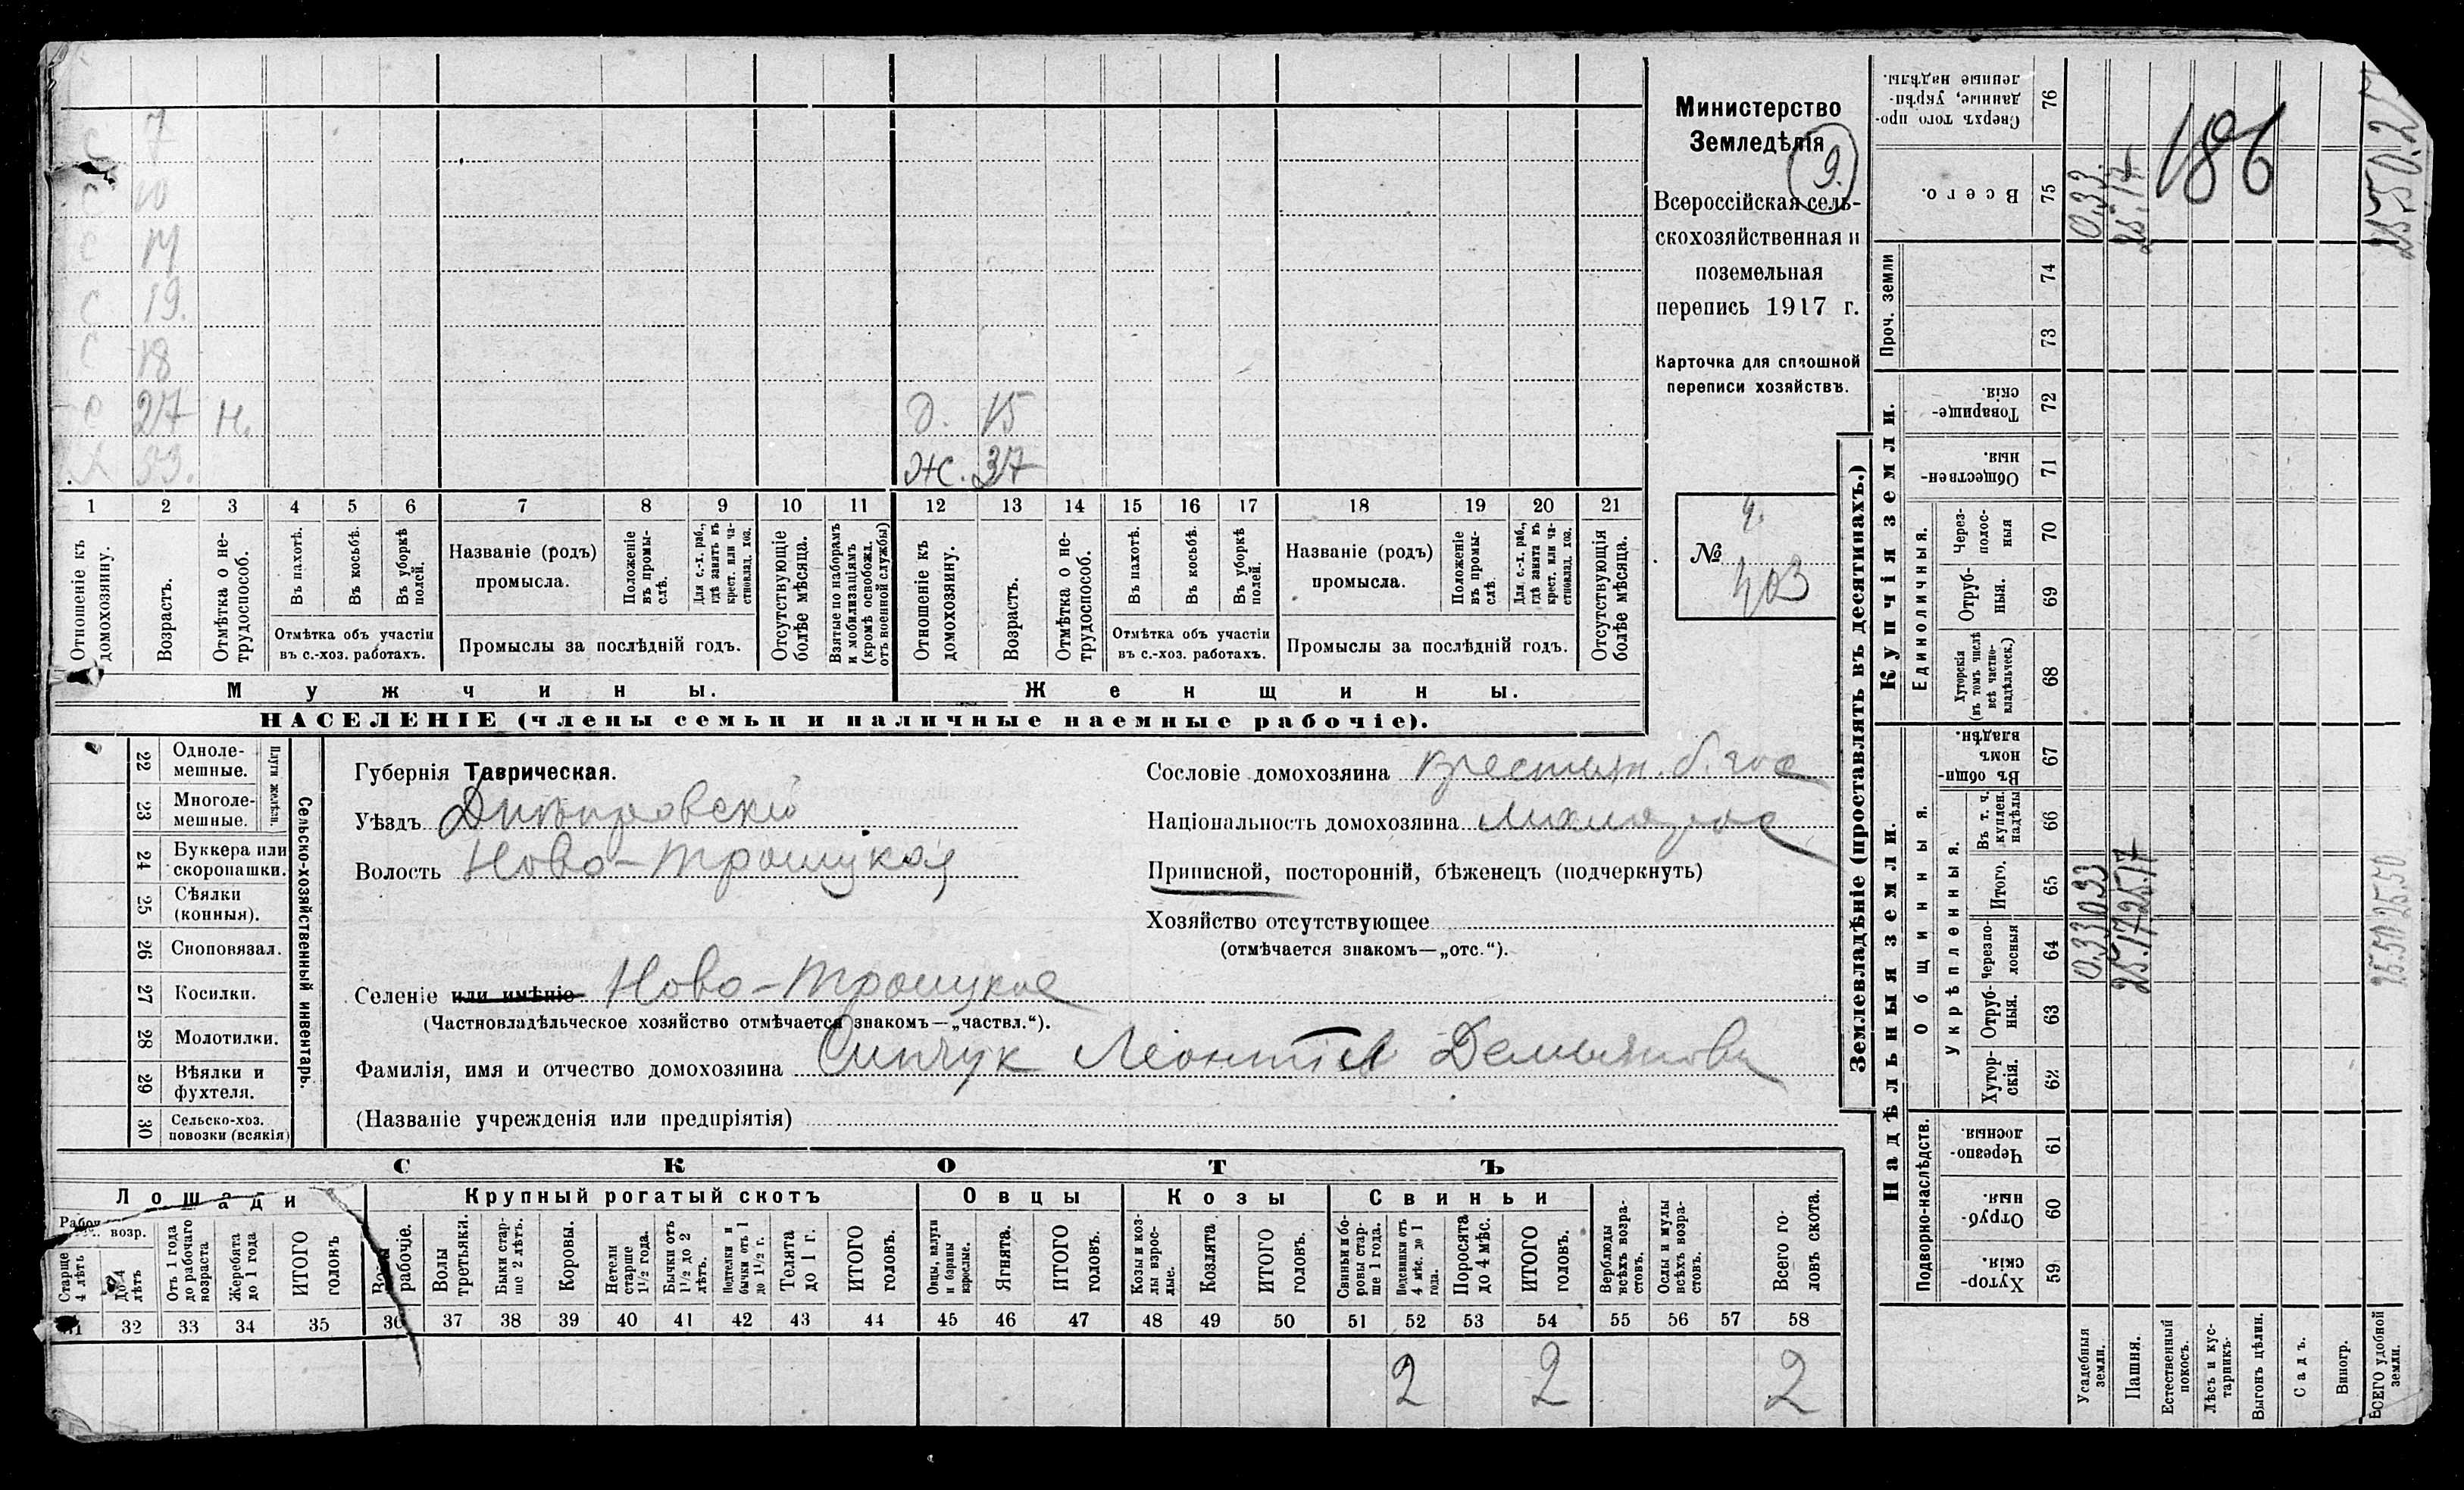 Министерство
Земледѣлія
9.
Всероссійская сель-
скохозяйственная и
поземельная
перепись 1917 г.
Карточка для сплошной
переписи хозяйствъ.
№
403
С 7
С 10
С 14
С 19.
С 18
С 27 н.
53.
д. 15
Ж. 37
1 2 3 4 5 6 7 8 9 10 11 12 13 14 15 16 17 18 19 20 21
Отношеніе къ домохозяину.
Возрастъ.
Отмѣтка о не-трудоспособ.
Въ пахотѣ.
Въ косьбѣ.
Въ уборкѣ полей.
Отмѣтка объ участіи
въ с.-хоз. работахъ.
Названіе (родъ)
промысла.
Положеніе въ промы-слѣ.
Для с.-х. раб., гдѣ занятъ въ крест. или ча-стновлад. хоз.
Промыслы за послѣдній годъ.
Отсутствующіе болѣе мѣсяца.
Взятые по наборамъ и мобилизаціямъ (кромѣ освобожд. отъ военной службы)
Отношеніе къ домохозяину.
Возрастъ.
Отмѣтка о не-трудоспособ.
Въ пахотѣ.
Въ косьбѣ.
Въ уборкѣ полей.
Отмѣтка объ участіи
въ с.-хоз. работахъ.
Названіе (родъ)
промысла.
Положеніе въ промы-слѣ.
Для с.-х. раб., гдѣ занята въ крест. или ча-стновлад. хоз.
Промыслы за послѣдній годъ.
Отсутствующія болѣе мѣсяца.
Мужчины.
Женщины.
НАСЕЛЕНІЕ (члены семьи и наличные наемные рабочіе).
22 Одноле-мешные.
23 Многоле-мешные.
Плуги желѣзн.
24 Буккера или скоропашки.
25 Сѣялки (конныя).
26 Сноповязал.
27 Косилки.
28 Молотилки.
29 Вѣялки и фухтеля.
30 Сельско-хоз. повозки (всякія)
Сельско-хозяйственный инвентарь.
Губернія Таврическая.
Уѣздъ Днѣпровскій
Волость Ново-Троицкая
Селеніе или имѣніе Ново-Троицкое
(Частновладѣльческое хозяйство отмѣчается знакомъ—„частвл.“).
Фамилія, имя и отчество домохозяина Синчук Леонтій Демьянови
(Названіе учрежденія или предпріятія)
Сословіе домохозяина крестьян. б. гос
Національность домохозяина
Приписной, посторонній, бѣженецъ (подчеркнуть)
Хозяйство отсутствующее
(отмѣчается знакомъ—„отс.“).
СКОТЪ
Лошади
Крупный рогатый скотъ
Овцы
Козы
Свиньи
возр.
Старше 4 лѣтъ
До 4 лѣтъ
Отъ 1 года до рабочаго возраста
Жеребята до 1 года
ИТОГО головъ
рабочіе.
Волы третьяки.
Быки стар-ше 2 лѣтъ.
Коровы.
Нетели старше 1½ года.
Бычки отъ 1½ до 2 лѣтъ.
Подтелки и бычки отъ 1 до 1½ г.
Телята до 1 г.
ИТОГО головъ.
Овцы, валухи и бараны взрослые.
Ягнята.
ИТОГО головъ.
Козы и коз-лы взрос-лые.
Козлята
ИТОГО головъ.
Свиньи и бо-ровы стар-ше 1 года.
Подсвинки отъ 4 мѣс. до 1 года.
Поросята до 4 мѣс.
ИТОГО головъ.
Верблюды всѣхъ возра-стовъ.
Ослы и мулы всѣхъ возра-стовъ.
Всего го-ловъ скота.
31 32 33 34 35 36 37 38 39 40 41 42 43 44 45 46 47 48 49 50 51 52 53 54 55 56 57 58
2 2 2
Землевладѣніе (проставлять въ десятинахъ.)
Надѣльныя земли.
Купчія земли.
Проч. земли
Подворно-наслѣдств.
Общинныя.
Укрѣпленныя.
Единоличныя.
Хутор-скія. 59
Отруб-ныя. 60
Черезпо-лосныя. 61
Хутор-скія. 62
Отруб-ныя. 63
Черезпо-лосныя 64
Итого. 65
Въ т. ч. куплен. надѣлы 66
Въ общи-номъ владѣн. 67
Хуторскія (въ томъ числѣ всѣ частно-владѣльческ.) 68
Отруб-ныя. 69
Через-полос-ныя 70
Обществен-ныя. 71
Товарище-скія. 72
73
74
Всего. 75
Сверхъ того про-данные, укрѣп-ленные надѣлы. 76
Усадебныя земли. 0.33 0.33 0.33.
Пашня. 25.17 25.17 25.17
Естественный покосъ.
Лѣсъ и кус-тарникъ.
Выгонъ цѣлин.
Садъ.
Виногр.
ВСЕГО удобной земли. 25.50 25.50
186